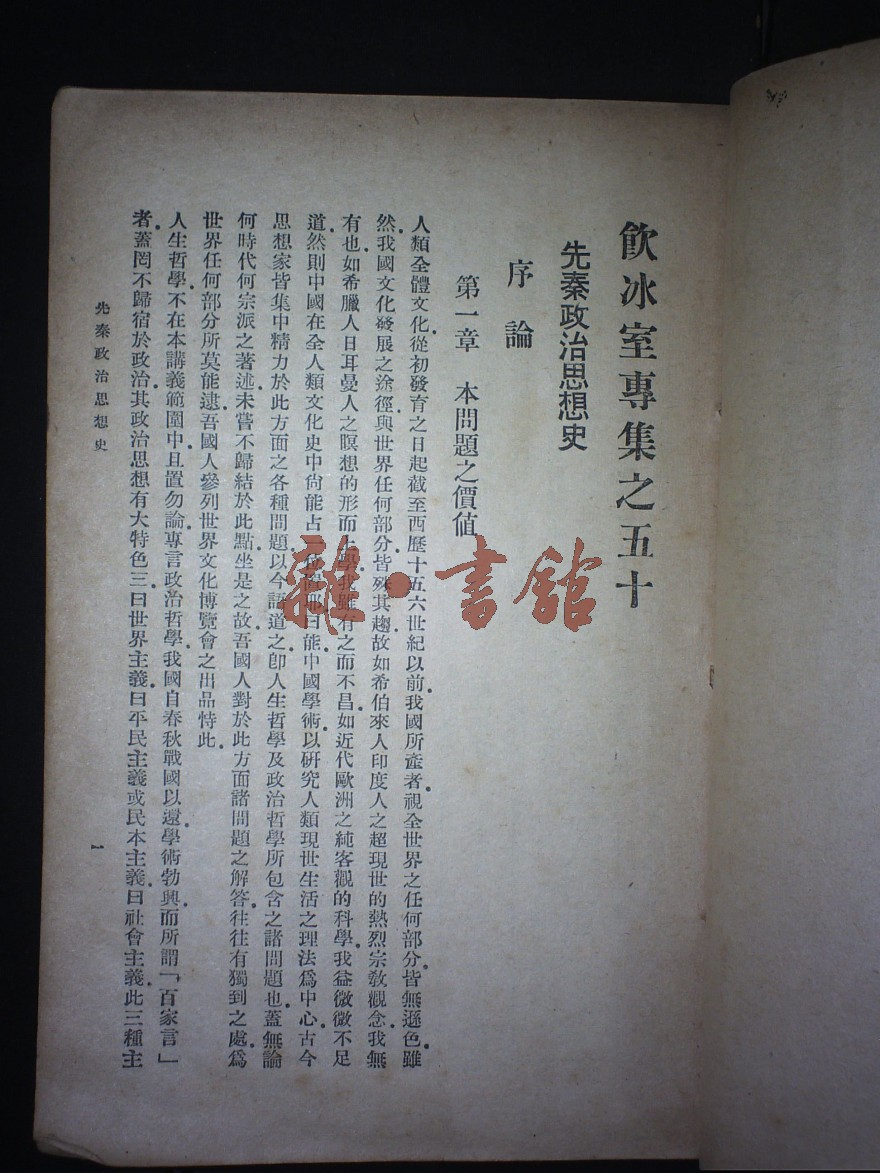 飲冰室專集之五十
先秦政治思想史
序論
第一章 本問題之價值
人類全體文化從初發育之日起截至西歷十五六世紀以前我國所產者視全世界之任何部分皆無遜色雖
然我國文化發展之途徑與世界任何部分皆殊其趨故如希伯來人印度人之超現世的熱烈宗教觀念我無
有也如希臘人日耳曼人之瞑想的形而上學我雖有之而不昌如近代歐洲之純客觀的科學我益微微不足
道然則中國在全人類文化史中尙能占一位置耶曰能中國學術以研究人類現世生活之理法爲中心古今
思想家皆集中精力於此方面之各種問題以今語道之卽人生哲學及政治哲學所包含之諸問題也蓋無論
何時代何宗派之著述未嘗不歸結於此點坐是之故吾國人對於此方面諸問題之解答往往有獨到之處爲
世界任何部分所莫能逮吾國人參列世界文化博覽會之出品恃此
人生哲學不在本講義範圍中且置勿論專言政治哲學我國自春秋戰國以還學術勃興而所謂「百家言」
者蓋罔不歸宿於政治其政治思想有大特色三曰世界主義曰平民主義或民本主義曰社會主義此三種主
先秦政治思想史
一
雜·書館